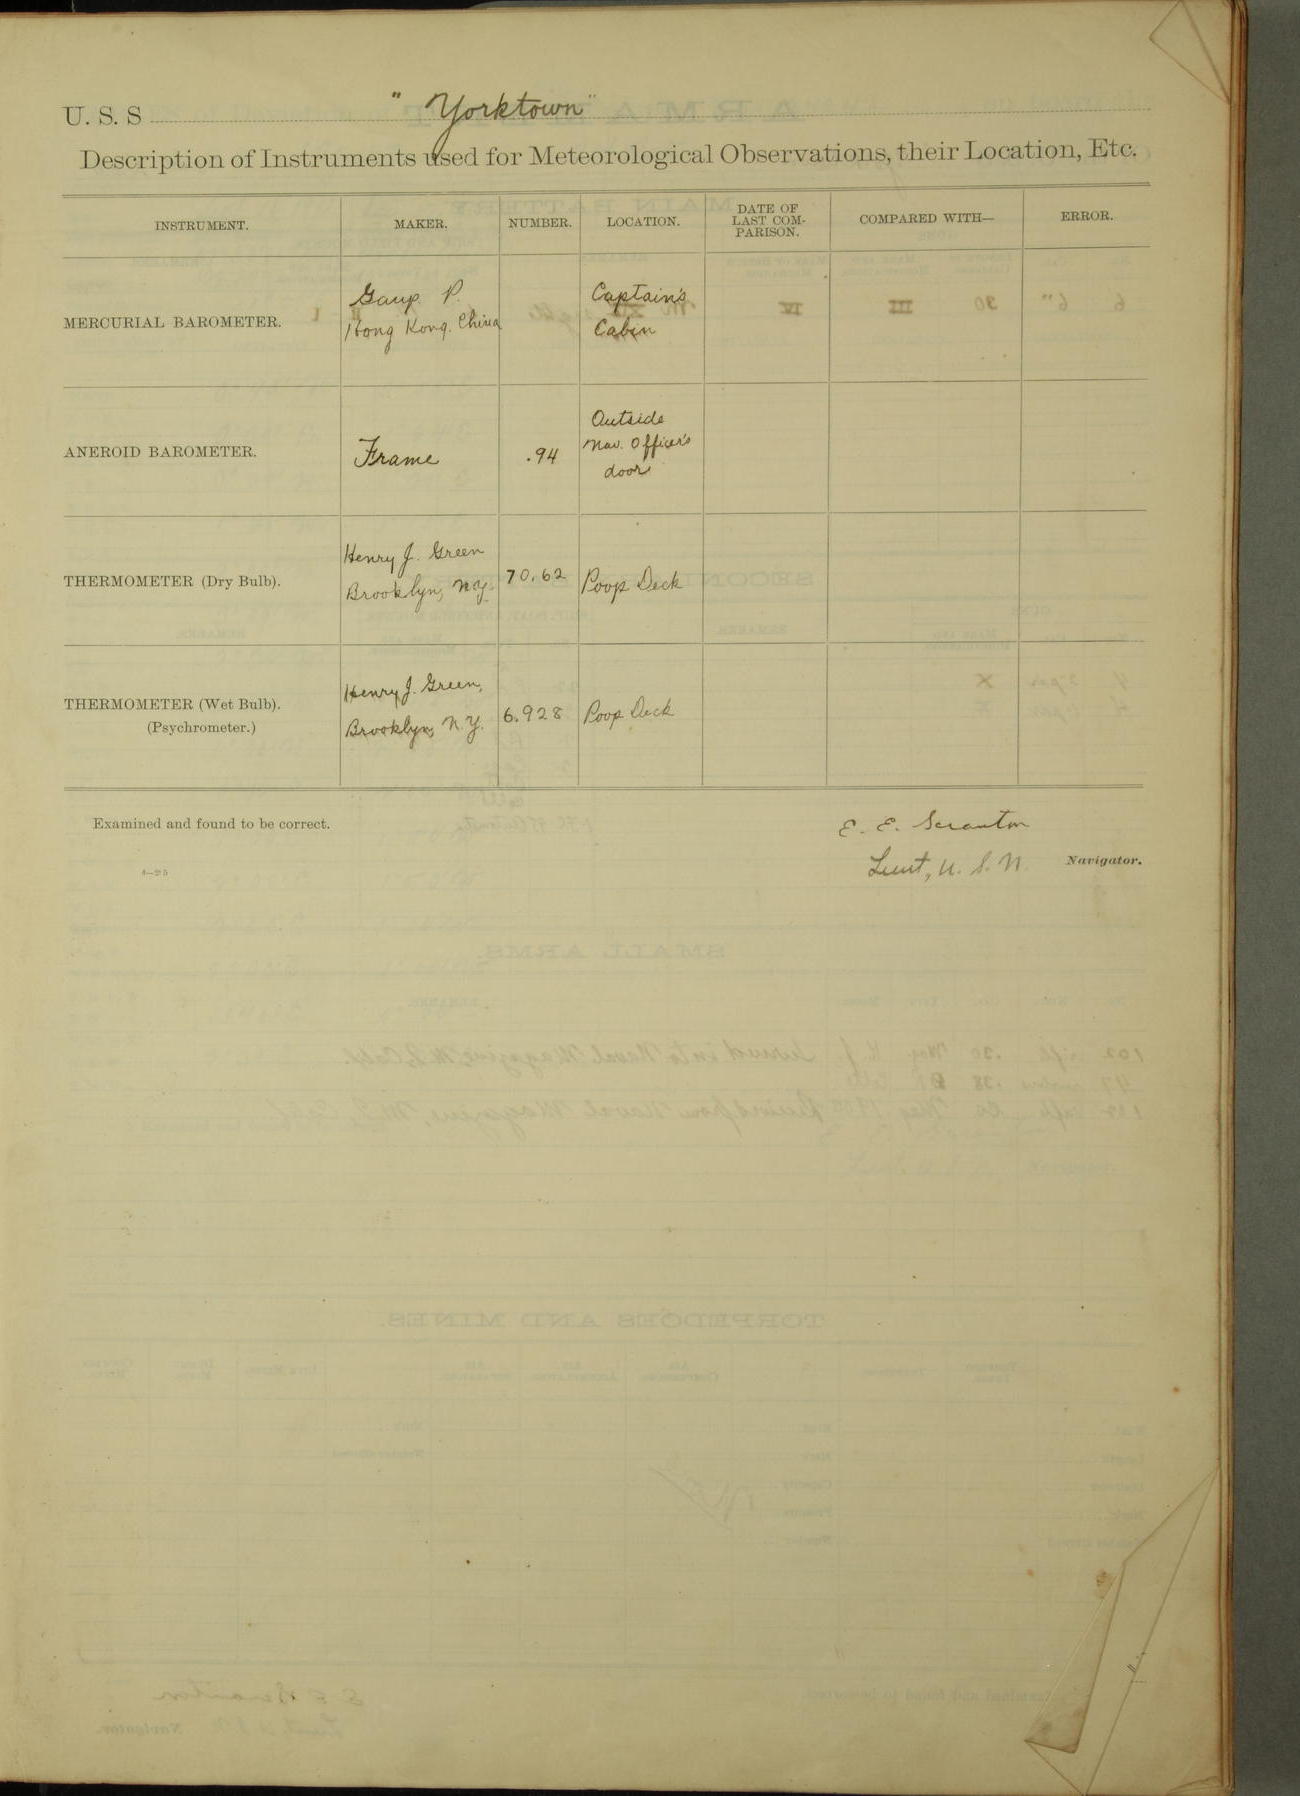 U. S. S "Yorktown"
Description of Instruments used for Meteorological Observations, their Location, Etc.
INSTRUMENT. MAKER. NUMBER. LOCATION. DATE OF LAST COM- PARISON. COMPARED WITH— ERROR.
MERCURIAL BAROMETER.
Gaup. P.
Hong Kong. China
Captain's
Cabin
ANEROID BAROMETER.
Frame
.94
Outside
Nav. Officer's
door
THERMOMETER (Dry Bulb).
Henry J. Green
Brooklyn, N.Y.
70.62
Poop Deck
THERMOMETER (Wet Bulb).
(Psychrometer.)
Henry J. Green,
Brooklyn, N.Y.
6.928
Poop Deck
Examined and found to be correct.
E. E. Scranton
Lieut, U. S. N. Navigator.